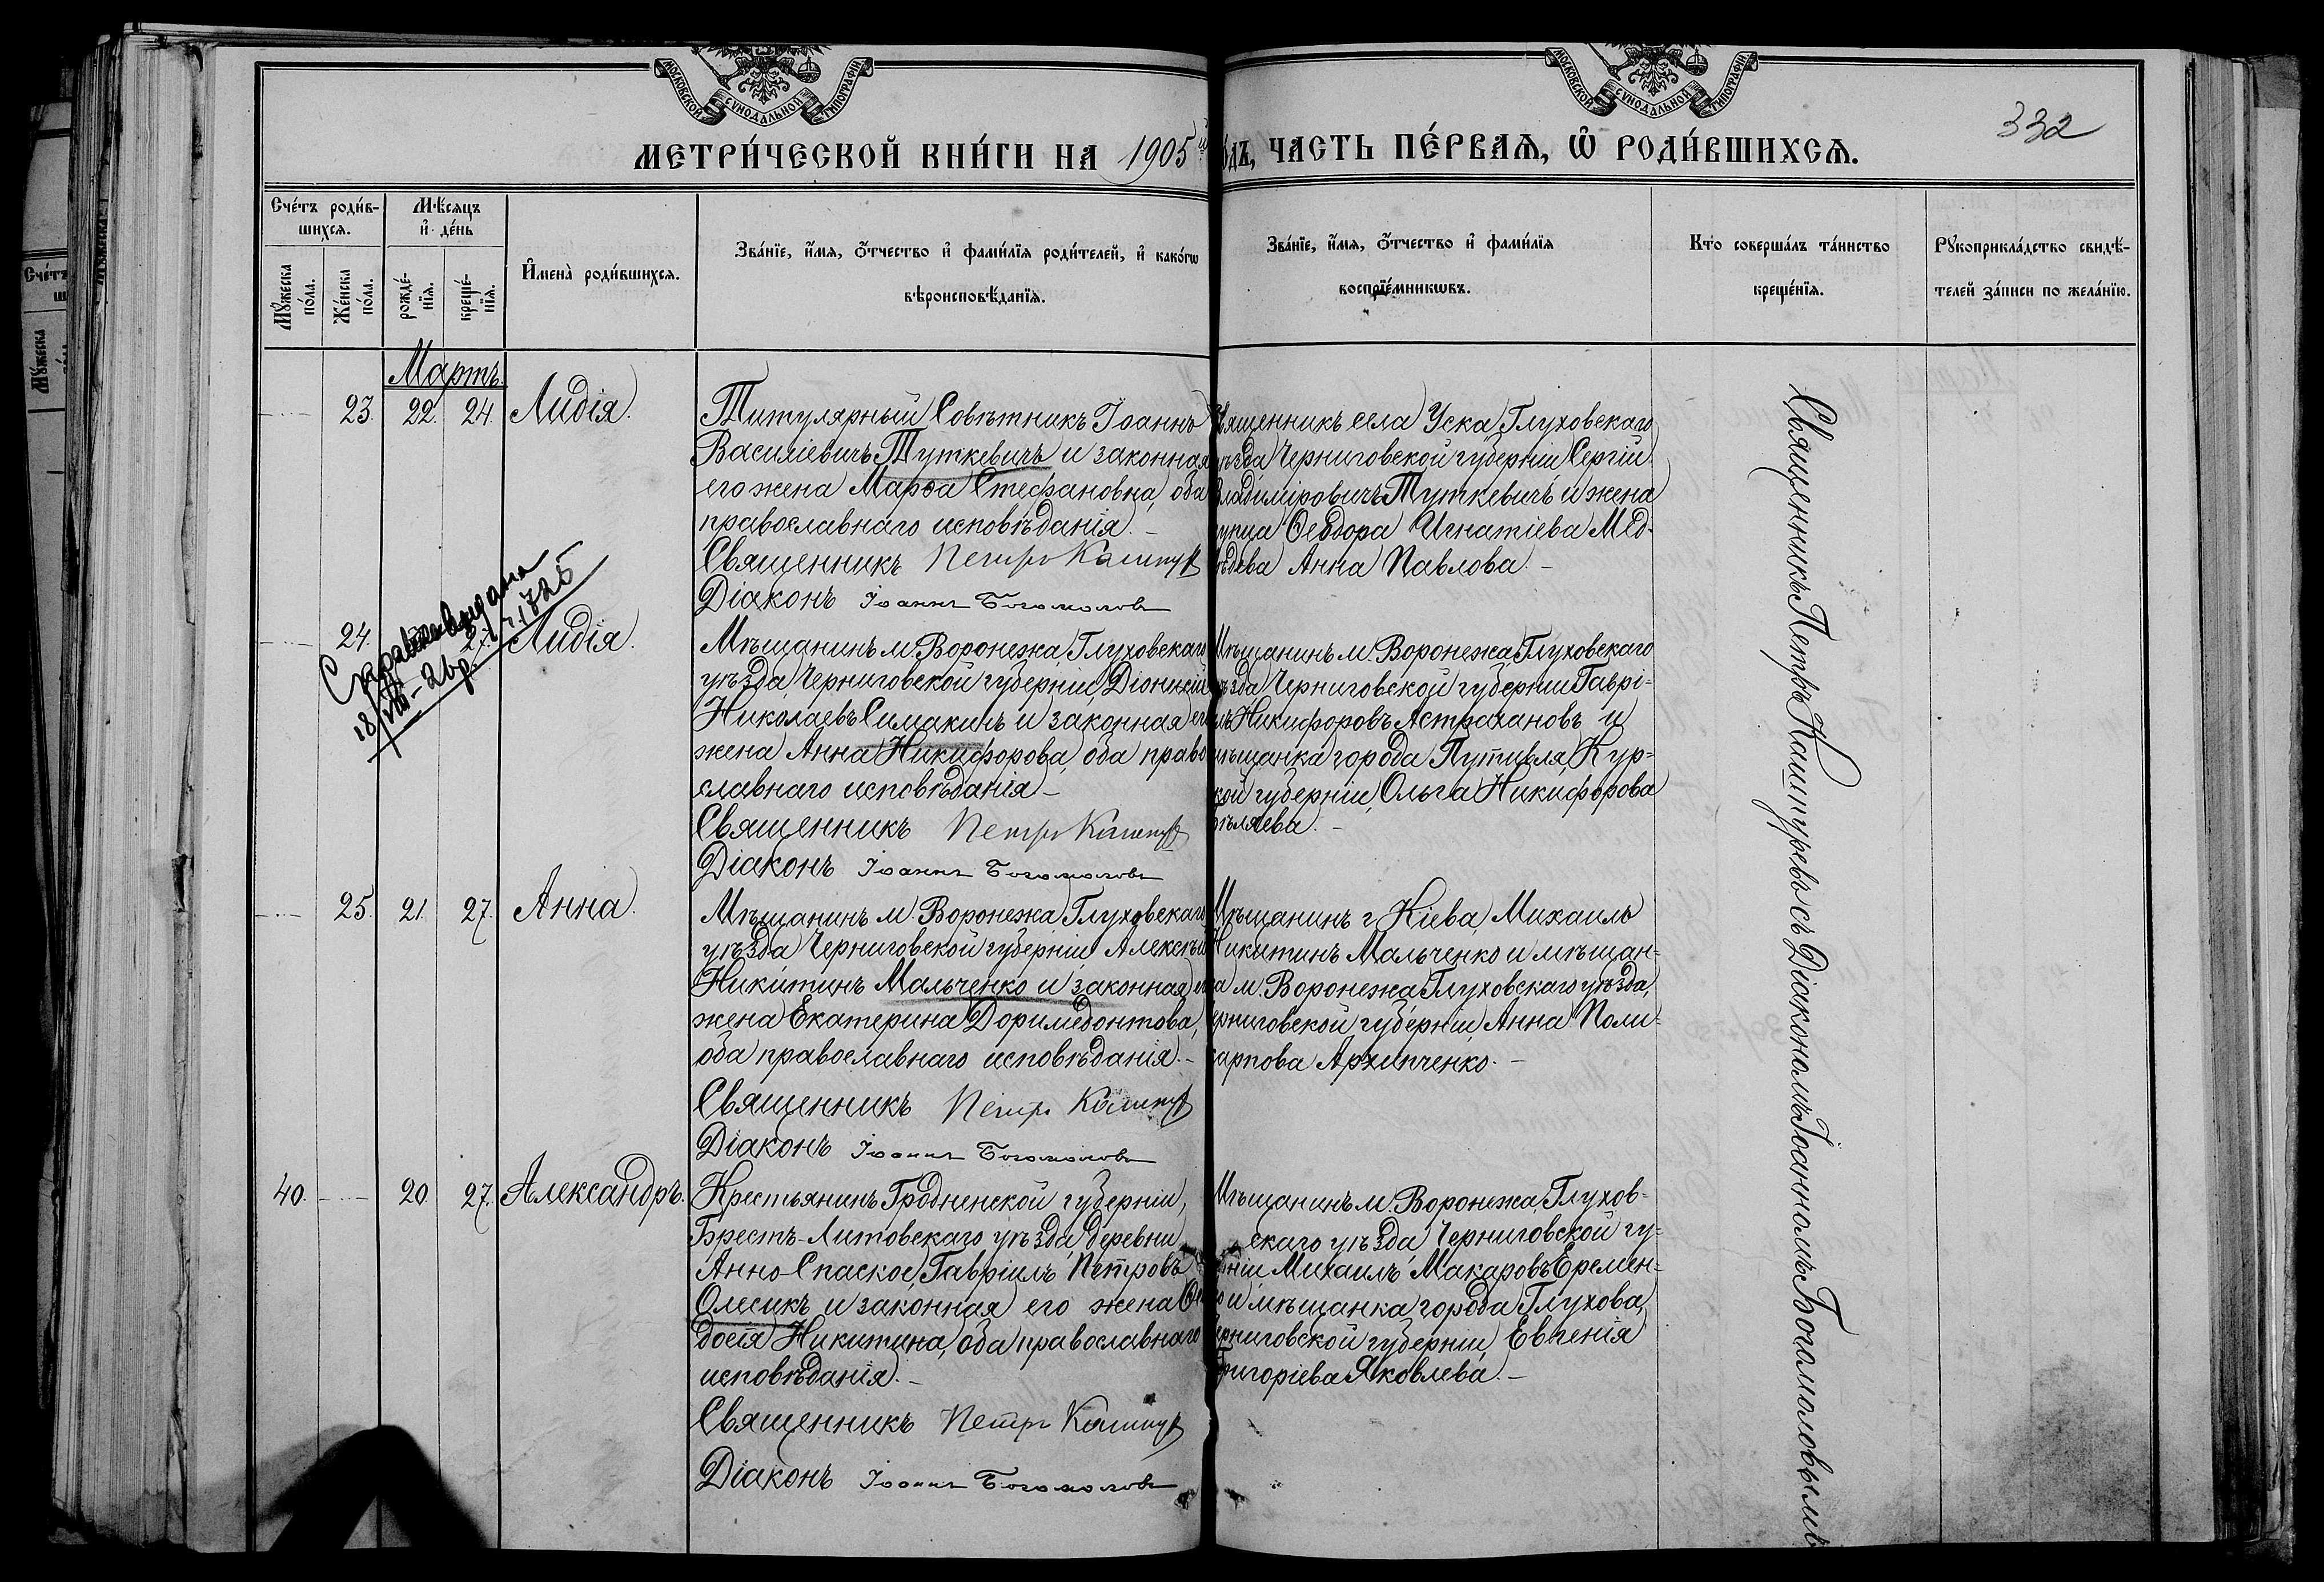 МОСКОВСКОЙ СѴНОДАЛЬНОЙ ТИПОГРАФІИ
МОСКОВСКОЙ СѴНОДАЛЬНОЙ ТИПОГРАФІИ
332
МЕТРИ́ЧЕСКОЙ КНИ́ГИ НА 1905й
одъ, ЧАСТЬ ПЕ́РВАЯ, Ѡ РОДИ́ВШИХСЯ.
Сче́тъ роди́в-
шихся.
Мѣ́сяцъ
и҆ де́нь
Мꙋ́жеска
по́ла.
Же́нска
по́ла.
рожде́-
нїя.
креще́-
нїя.
И҆мена̀ роди́вшихся.
Зва́нїе, и҆́мя, ѻ҆́тчество и҆ фами́лїя роди́телей, и҆ како́гѡ
вѣроисповѣ́данїя.
Зва́нїе, и҆́мя, ѻ҆́тчество и҆ фами́лїя
воспрїе́мникѡвъ.
Кто̀ соверша́лъ та́инство
креще́нїя.
Рꙋкоприкла́дство свидѣ́-
телей за́писи по жела́нїю.
Мартъ.
23. 22. 24. Лидія.
Титулярный Совѣтникъ Іоаннъ
Василіевичъ Туткевичъ и законная
его жена Марѳа Стефановна, оба
православнаго исповѣданія. –
Священникъ Петръ Кашпур
Діаконъ Іоаннъ Богомоловъ
вященникъ села Уска, Глуховскаго
ѣзда Черниговской губерніи Сергій
Владиміровичъ Туткевичъ и жена
купца Ѳеодора Игнатіева Мед-
ѣдева Анна Павлова. –
24. 27. Лидія.
Справка выдана
18/VIII – 26 г.
Мѣщанинъ м. Воронежа, Глуховскаго
уѣзда, Черниговской губерніи, Діонисій
Николаевъ Симакинъ и законная его
жена Анна Никифорова, оба право
славнаго исповѣданія –
Священникъ Петръ Кашпур
Діаконъ Іоаннъ Богомоловъ
Мѣщанинъ м. Воронежа, Глуховскаго
ѣзда Черниговской губерніи Гаврі-
лъ Никифоровъ Астрахановъ и
мѣщанка города Путивля, Кур-
кой губерніи, Ольга Никифорова
ѣляева. –
25. 21. 27. Анна.
Мѣщанинъ м. Воронежа Глуховскаго
уѣзда Черниговской губерніи Алексѣй
Никитинъ Мальченко и законная его
жена Екатерина Доримедонтова,
оба православнаго исповѣданія. –
Священникъ Петръ Кашпур
Діаконъ Іоаннъ Богомоловъ
Мѣщанинъ г. Кіева, Михаилъ
Никитинъ Мальченко и мѣщан-
ка м. Воронежа Глуховскаго уѣзда,
ерниговской губерніи, Анна Поли-
карпова Архипченко. –
40. 20 27. Александръ.
Крестьянинъ Гродненской губерніи,
Брестъ-Литовскаго уѣзда деревни
Анно-Спаское, Гавріилъ Петровъ
Олесикъ и законная его жена Ѳео
досія Никитина, оба православнаго
исповѣданія. –
Священникъ Петръ Кашпур
Діаконъ Іоаннъ Богомоловъ
Мѣщанинъ м. Воронежа, Глухов-
скаго уѣзда Черниговской гу-
рніи Михаилъ Макаровъ Еремен-
о и мѣщанка города Глухова,
ерниговской губерніи, Евгенія
Григоріева Яковлева. –
Священникъ Петръ Кашпуревъ съ Діакономъ Іоанномъ Богомоловымъ